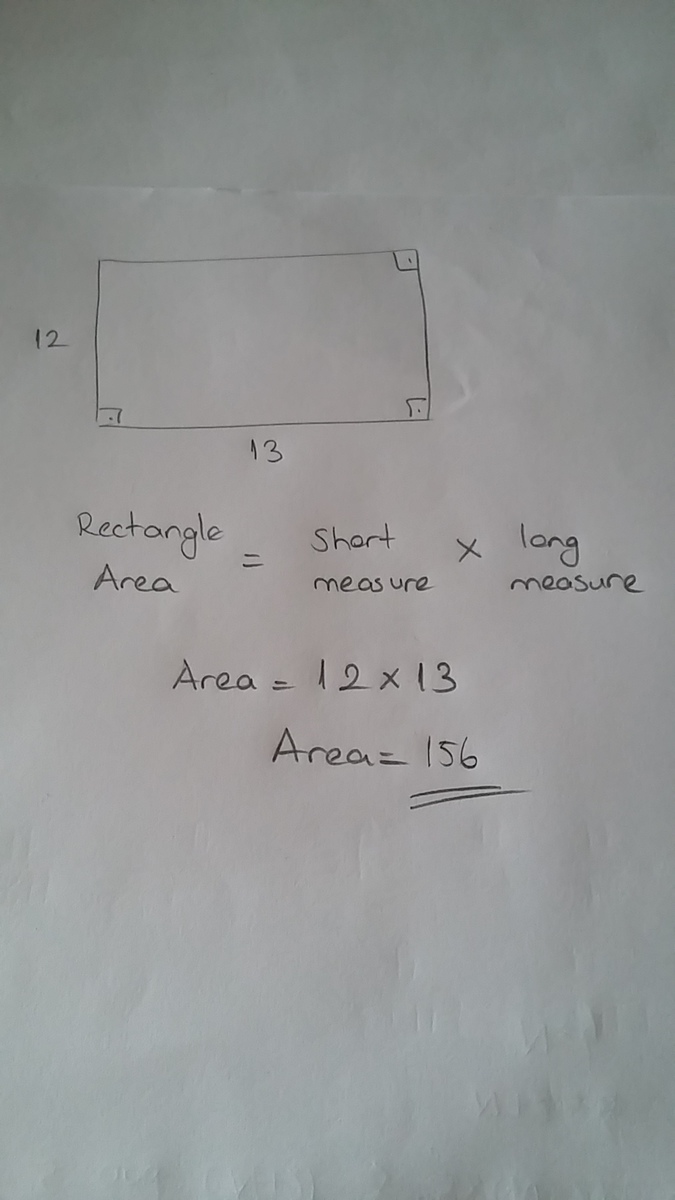 12
13
Rectangle Area = Short measure x long measure
Area = 12 x 13
Area = 156